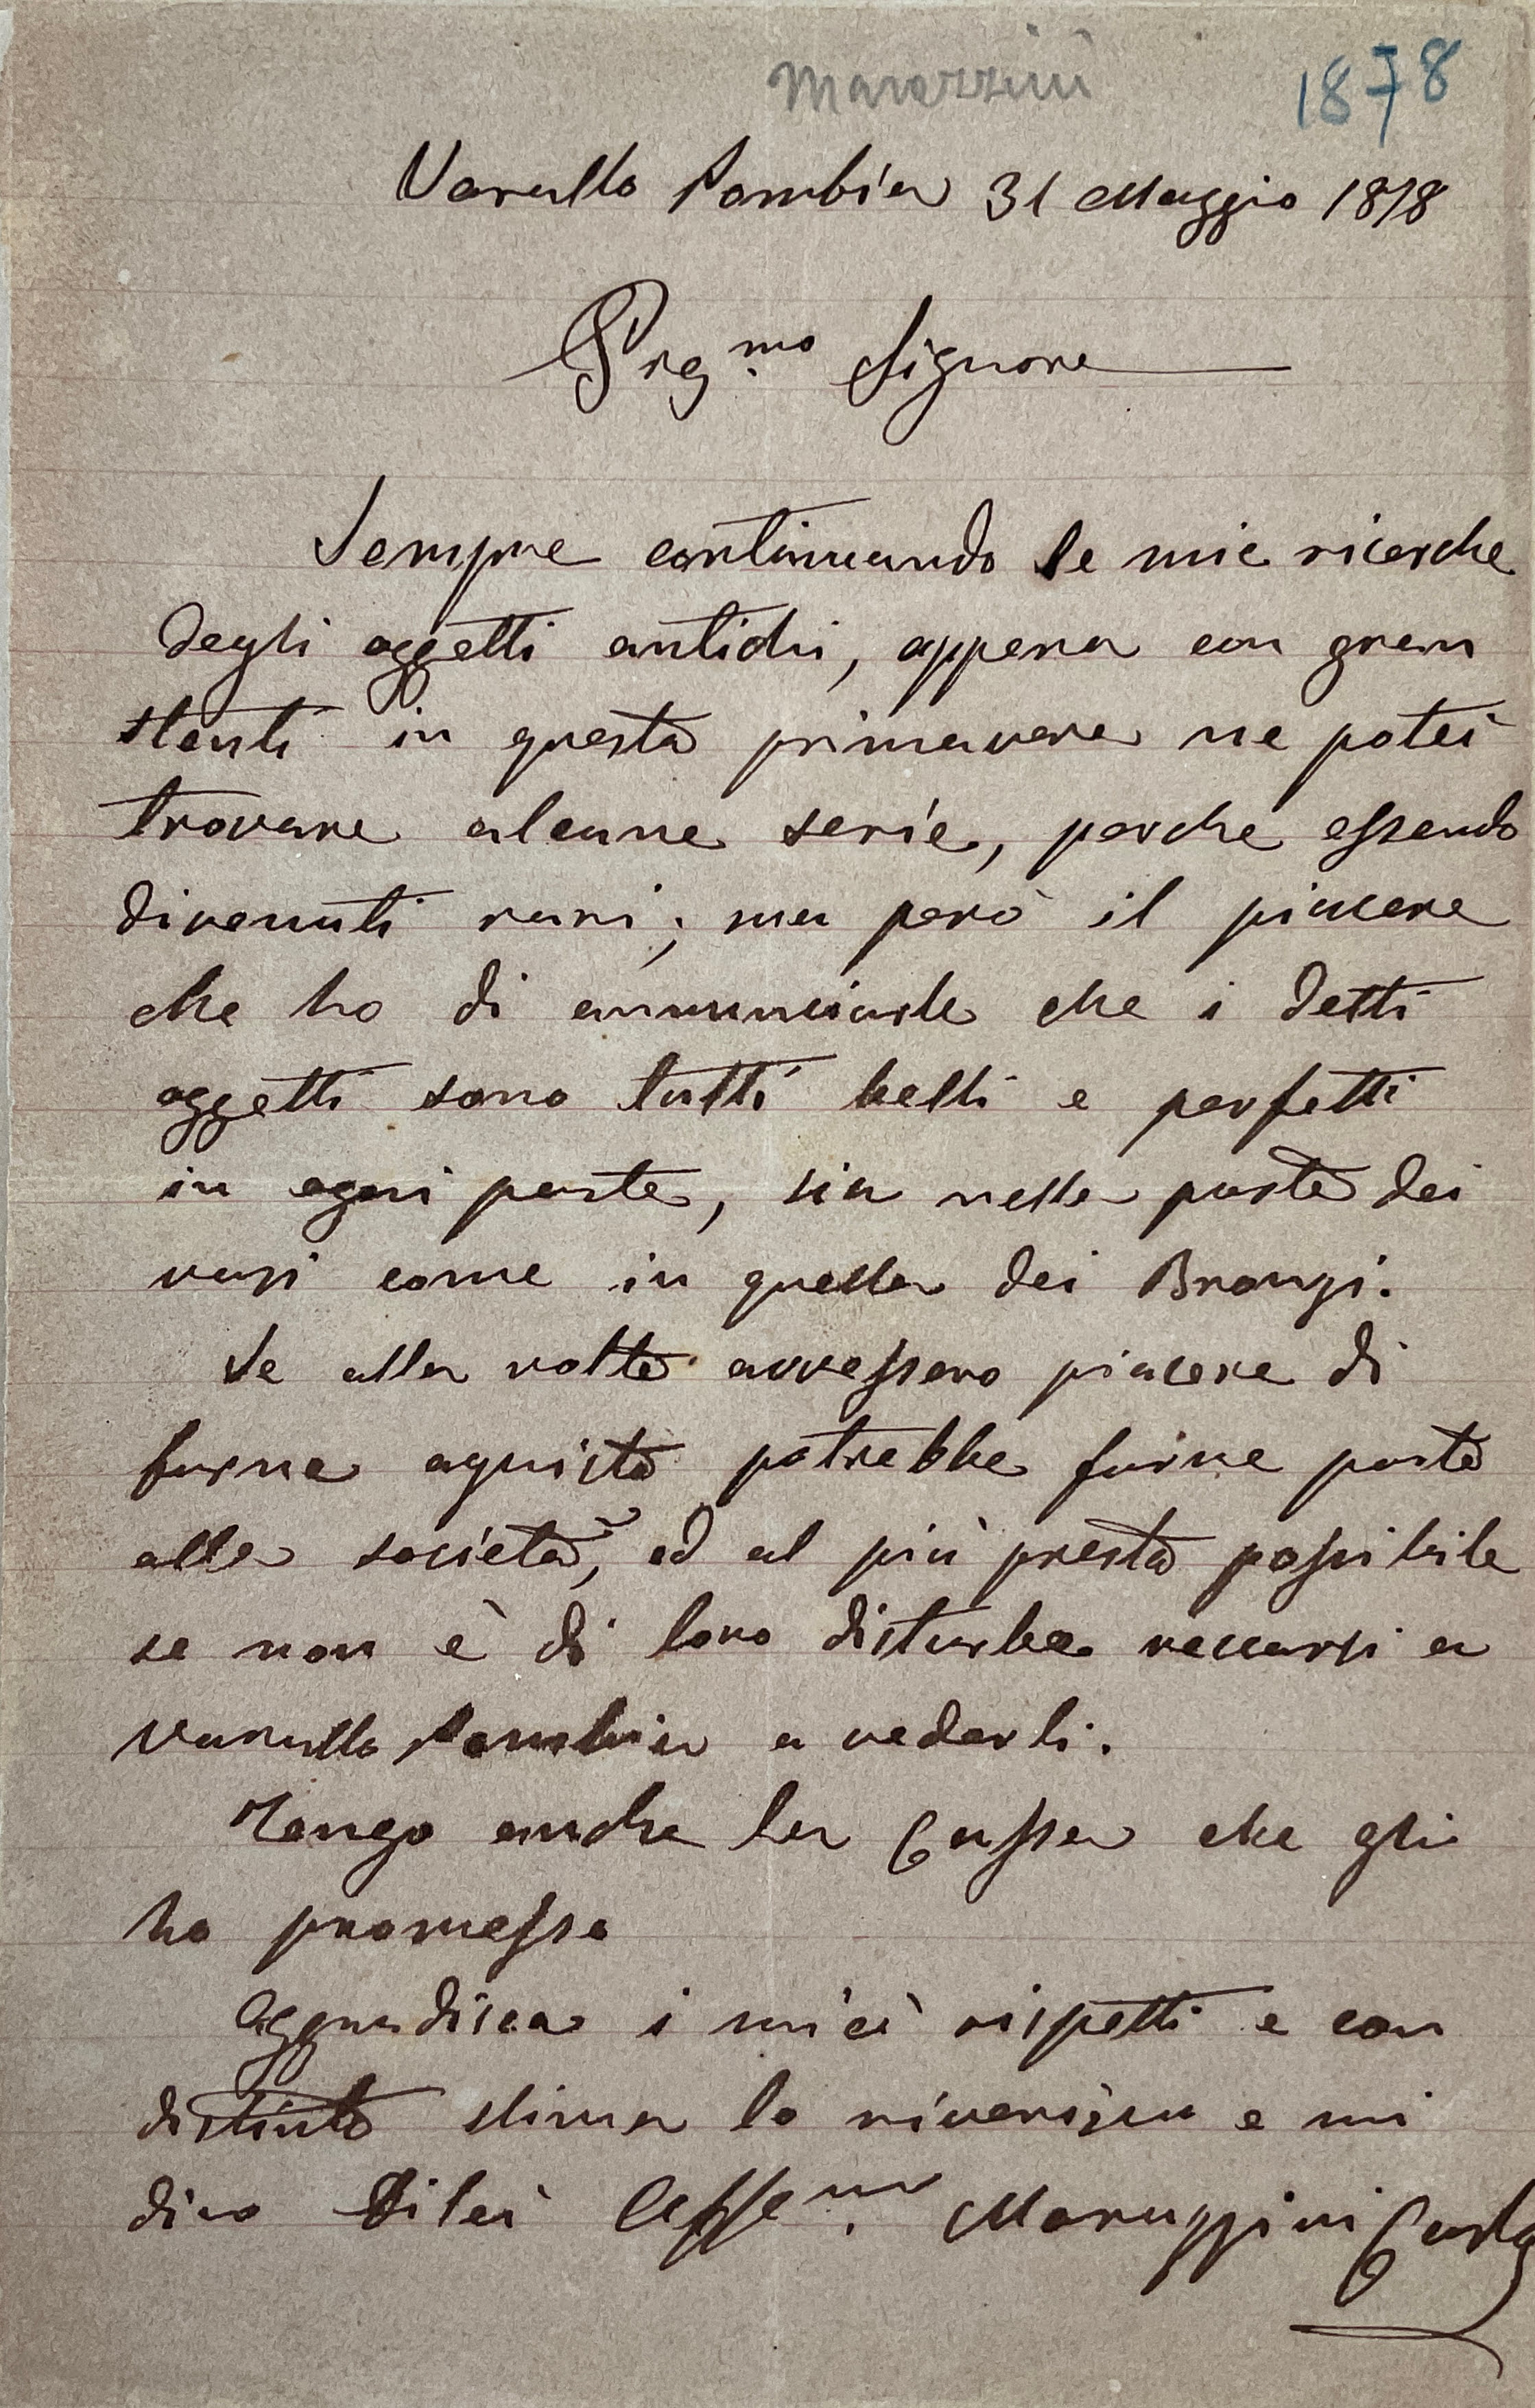 Marazzini
1878
Varallo Pombia 31 Maggio 1878
Preg.mo Signore
Sempre continuando le mie ricerche
degli oggetti antichi, appena con gran
stenti in questa primavera ne potei
trovare alcune serie, perche essendo
divenuti rari; ma però il piacere
che ho di annunciarle che i detti
oggetti sono tutti belli e perfetti
in ogni parte, sia nella parte dei
vasi come in quella dei Bronzi.
Se alla volta avvessero piacere di
farne aquisto potrebbe farne parte
alla società, ed al più presto possibile
se non è di loro disturbo reccarsi a
Varallo Pombia a vederli.
Tengo anche la Cassa che gli
ho promesso
Aggradisca i miei rispetti e con
distinta stima la riverisco e mi
dico Di lei Affe.mo Marazzini Carlo